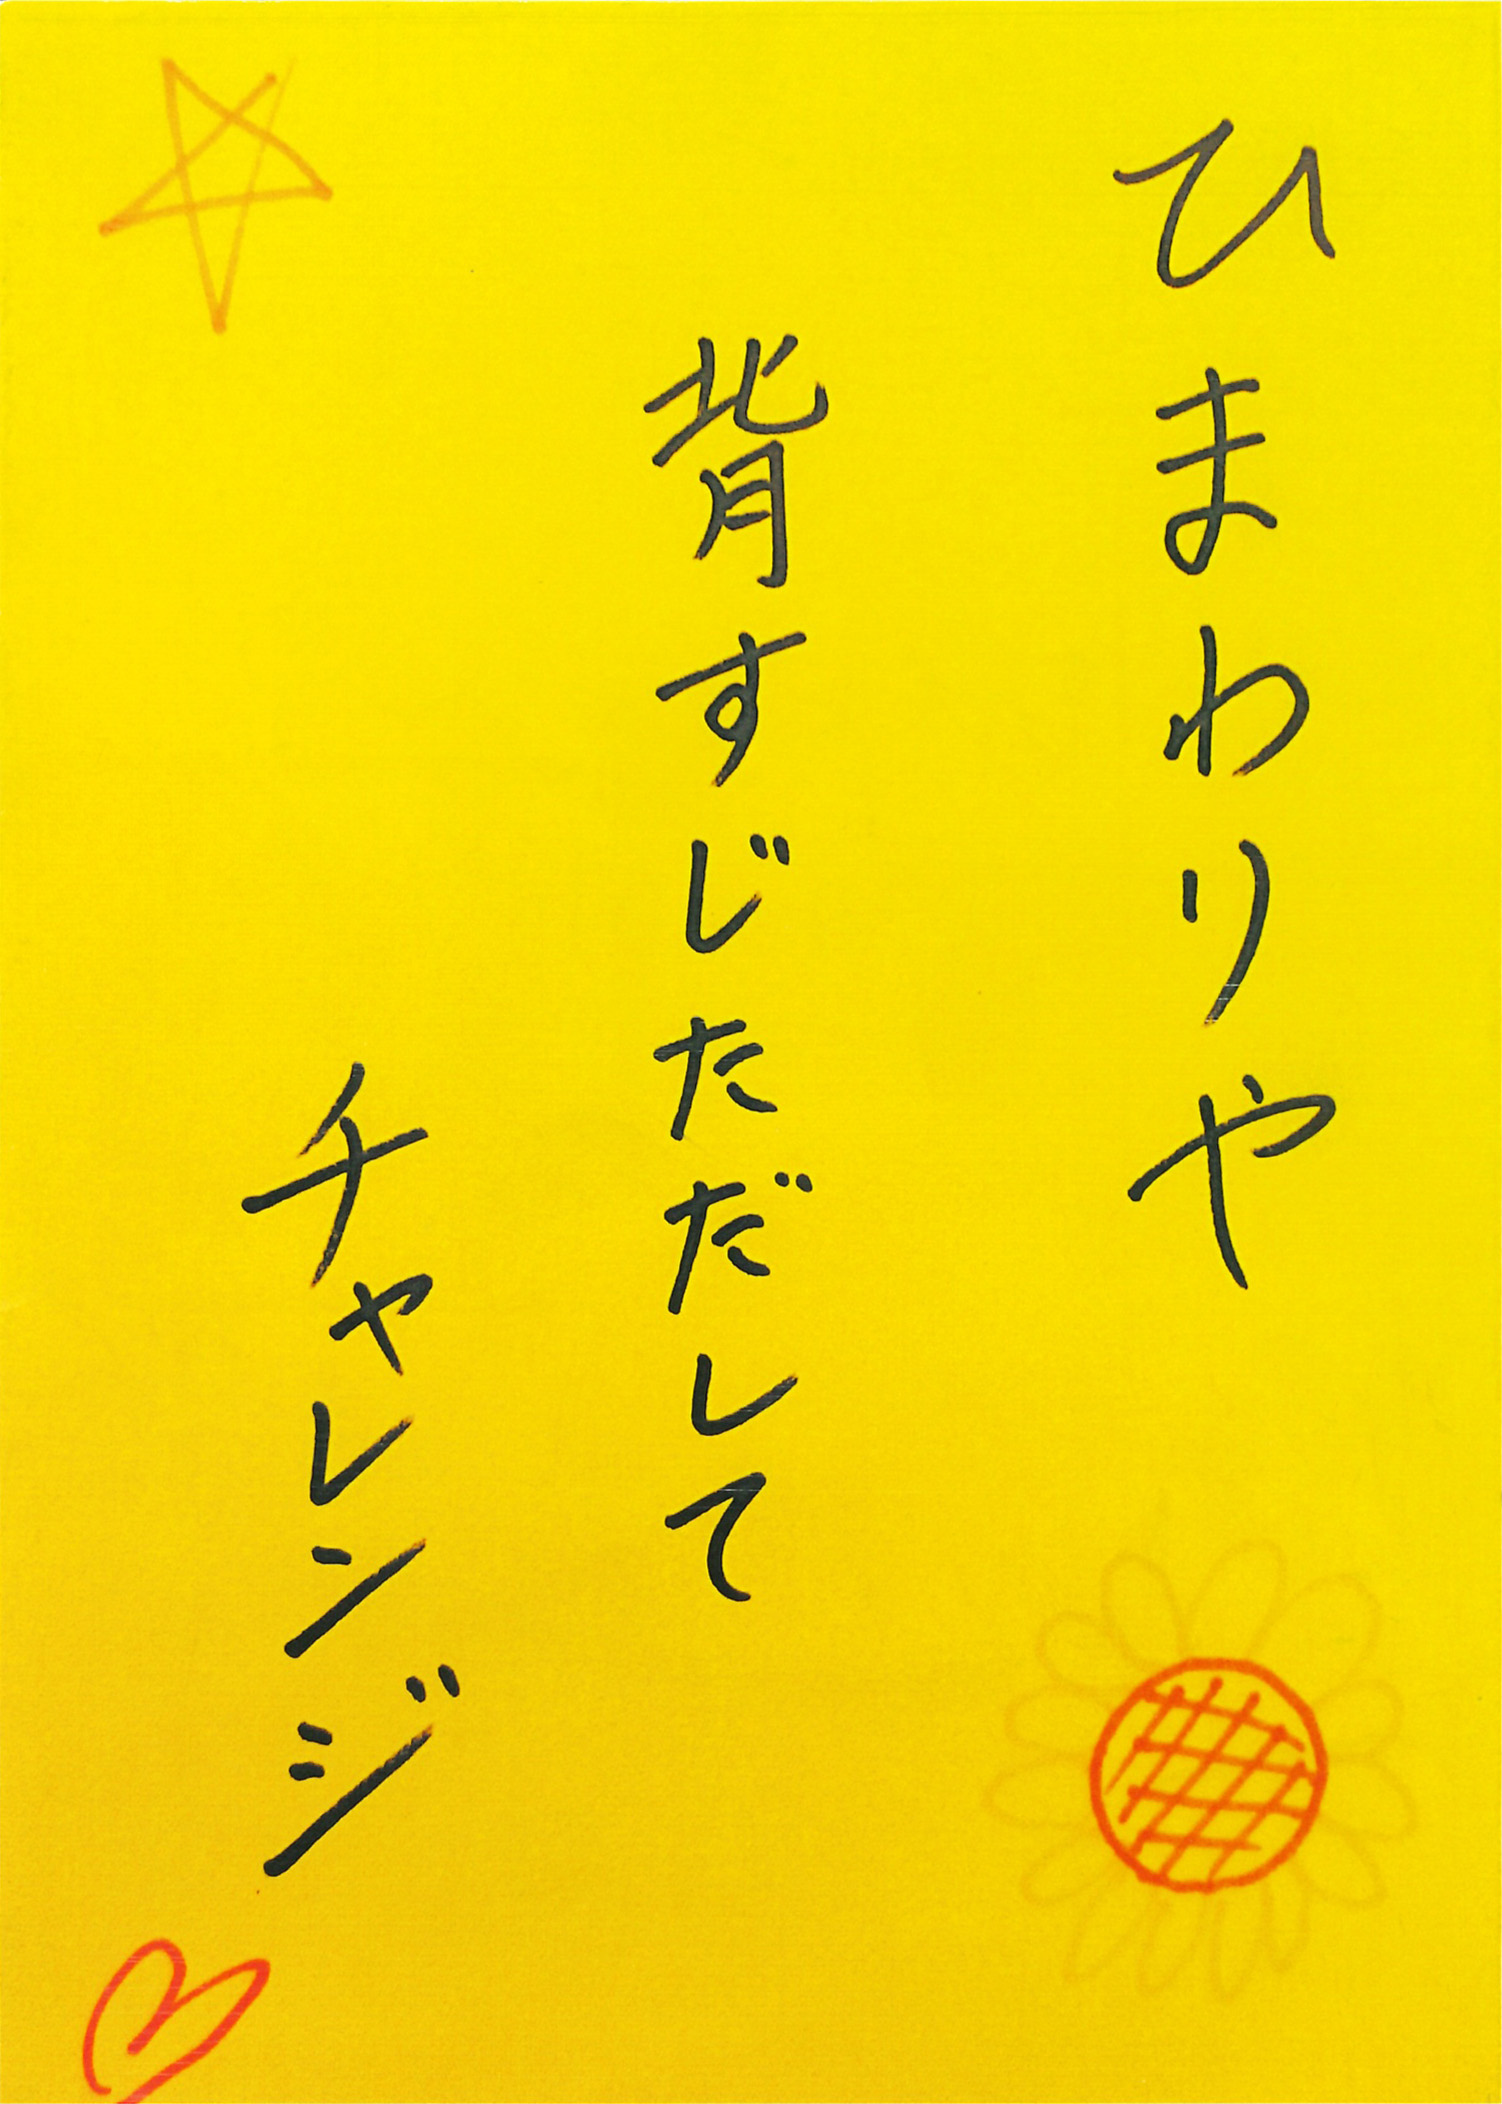 ひまわりや
背すじただして
チャレンジ